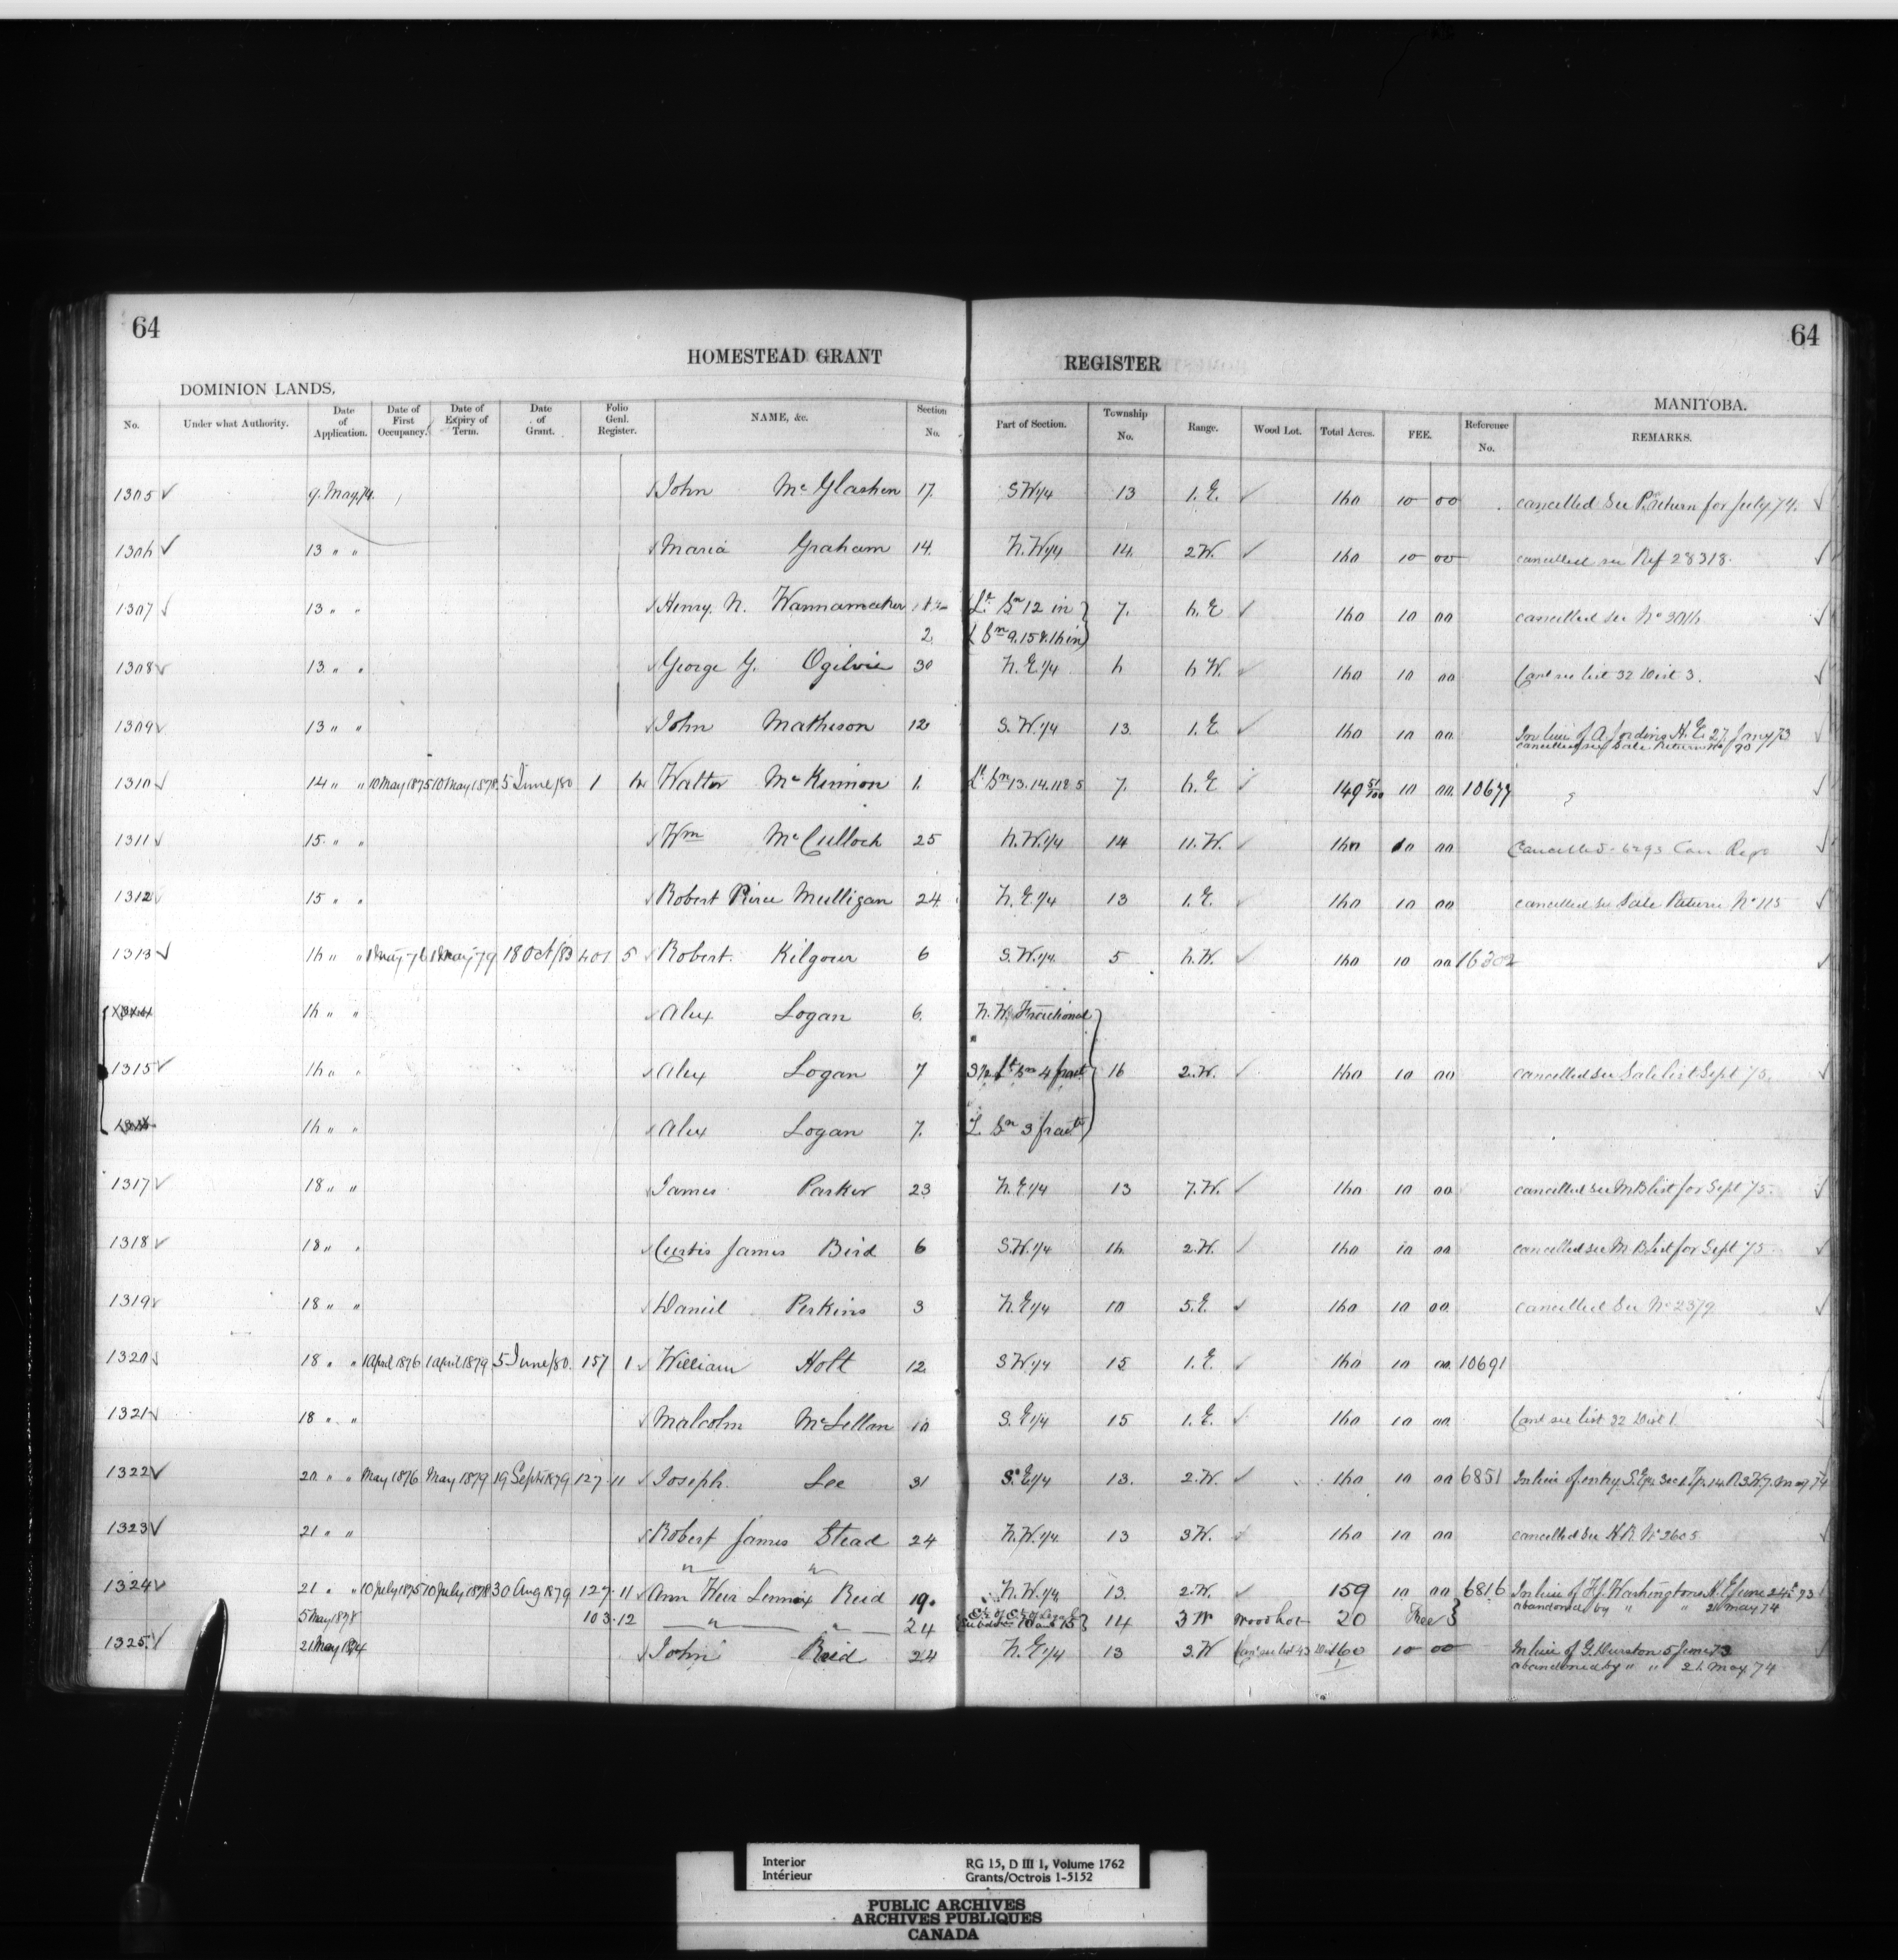 64
64
HOMESTEAD GRANT REGISTER
DOMINION LANDS,
MANITOBA.
No. Under what Authority. Date of Application. Date of First Occupancy. Date of Expiry of Term. Date of Grant. Folio Genl. Register. NAME, &c. Section No. Part of Section. Township No. Range. Wood Lot. Total Acres. FEE. Reference No. REMARKS.
1305 9 May 74 John McGlashen 17 S.W 1/4 13 1. E. 160 10 00 cancelled See return for July 74.
1306 13 " " Maria Graham 14. N.W 1/4 14. 2 W. 160 10 00 cancelled see Ref 28318.
1307 13 " " Henry. N. Wannamaker 7. 6. E 160 10 00 cancelled see No 3016
2 9.15 & 16 in
1308 13 " " George G. Ogilvie 30 N.E 1/4 6 6 W. 160 10 00 Canl see list 32 Dist 3.
1309 13 " " John Mathison 12 S.W. 1/4 13. 1. E 160 10 00 In lieu of A. Fording H.E. 27 Jany 73
cancelled see Sale Return No 90
1310 14 " " 10 May 1875 10 May 1878 5 June/80 1 Walter McKinnon 1. 13.14.11 & 5 7. 6. E 149 51/100 10 00 10677
1311 15 " " Wm McCulloch 25 N.W. 1/4 14 11. W. 160 10 00 Cancelled - 6293
1312 15 " " Robert Pirie Mulligan 24. N.E 1/4 13 1. E. 160 10 00 cancelled see Sale Return No 115
1313 16 " " 79 18 Oct/83 401 5 Robert. Kilgour 6 S.W. 1/4 5 6. W. 160 10 00 16302
16 " " Alex Logan 6. N.W. Fractional
1315 16 " " Alex Logan 7 4 fract 16 2. W. 160 10 00 cancelled see Sale list Sept 75.
16 " " Alex Logan 7. L Sn 3 fract
1317 18 " " James Parker 23 N.E 1/4 13 7. W. 160 10 00 cancelled see M B list for Sept 75.
1318 18 " " Curtis James Bird 6 S.W. 1/4 16. 2. W. 160 10 00 cancelled see M B list for Sept 75.
1319 18 " " Daniel Perkins 3 N.E 1/4 10 5. E. 160 10 00 cancelled See No 2379
1320 18 " " 1 April 1876 1 April 1879 5 June/80. 157 1 William Holt 12 S W 1/4 15 1. E. 160 10 00 10691
1321 18 " " Malcolm McLellan 10 S. E 1/4 15 1. E. 160 10 00 Canl see list 32 Dist 1
1322 20 " " May 1876 May 1879 19 Sept 1879 127 11 Joseph. Lee 31 S. E 1/4 13. 2. W 160 10 00 6851 In lieu of entry S.E 1/4 Sec 1 Tp. 14. R. 3 W. 7. May 74
1323 21 " " Robert James Stead 24 N.W. 1/4 13 3 W. 160 10 00 cancelled see H.R. No 2605
" "
1324 21 " " 10 July 1875 10 July 1878 30 Aug 1879 127 11 Ann Weir Lennox Reid 19. N.W. 1/4 13. 2. W. 159 10 00 6816 In lieu of Washingtons H.E June 24th 73
abandoned by " " 21 May 74
5 May 1878 103-12 " " 24 14 3 W Wood Lot 20 Free
1325. 21 May 1874 John Reid 24 N.E 1/4 13 3. W Can see list 43 160 10 00 In lieu of G. Durston 5 June 73
abandoned by " " 21. May 74
Interior
Intérieur
RG 15, D III 1, Volume 1762
Grants/Octrois 1-5152
PUBLIC ARCHIVES
ARCHIVES PUBLIQUES
CANADA